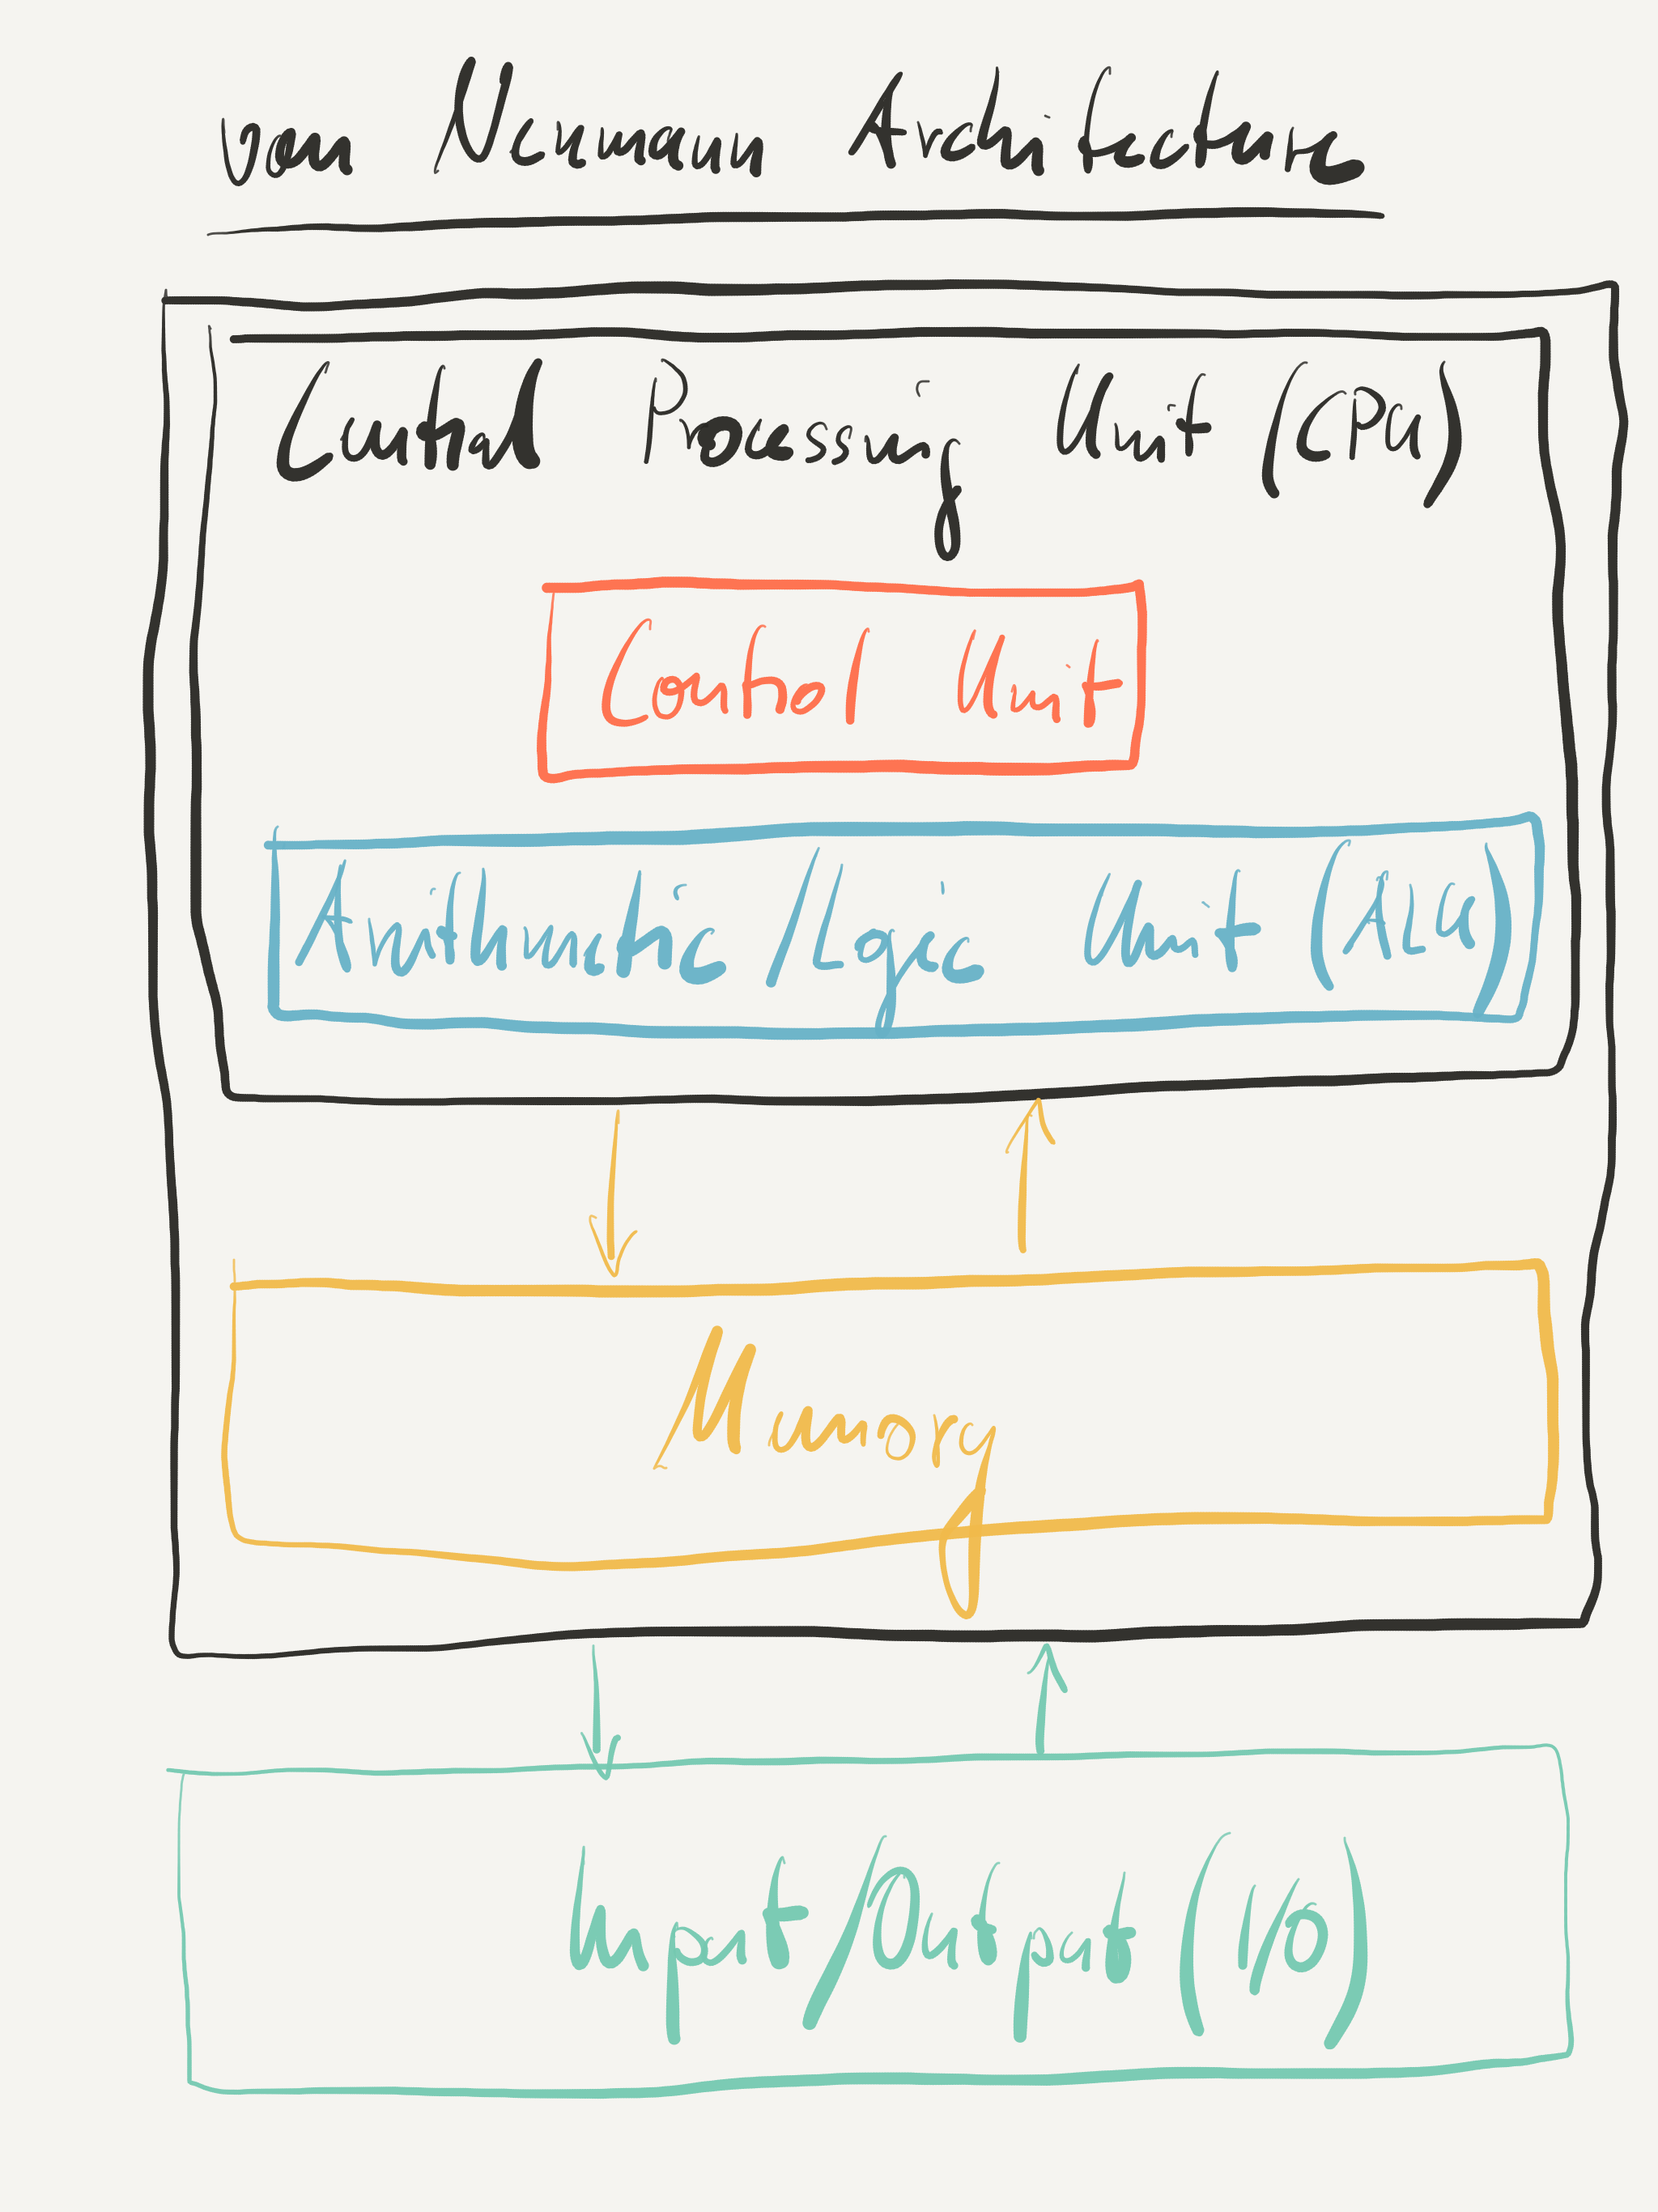 von Neumann Architecture
Central Processing Unit (CPU)
Control Unit
Arithmetic/Logic Unit (ALU)
Memory
Input/Output (I/O)